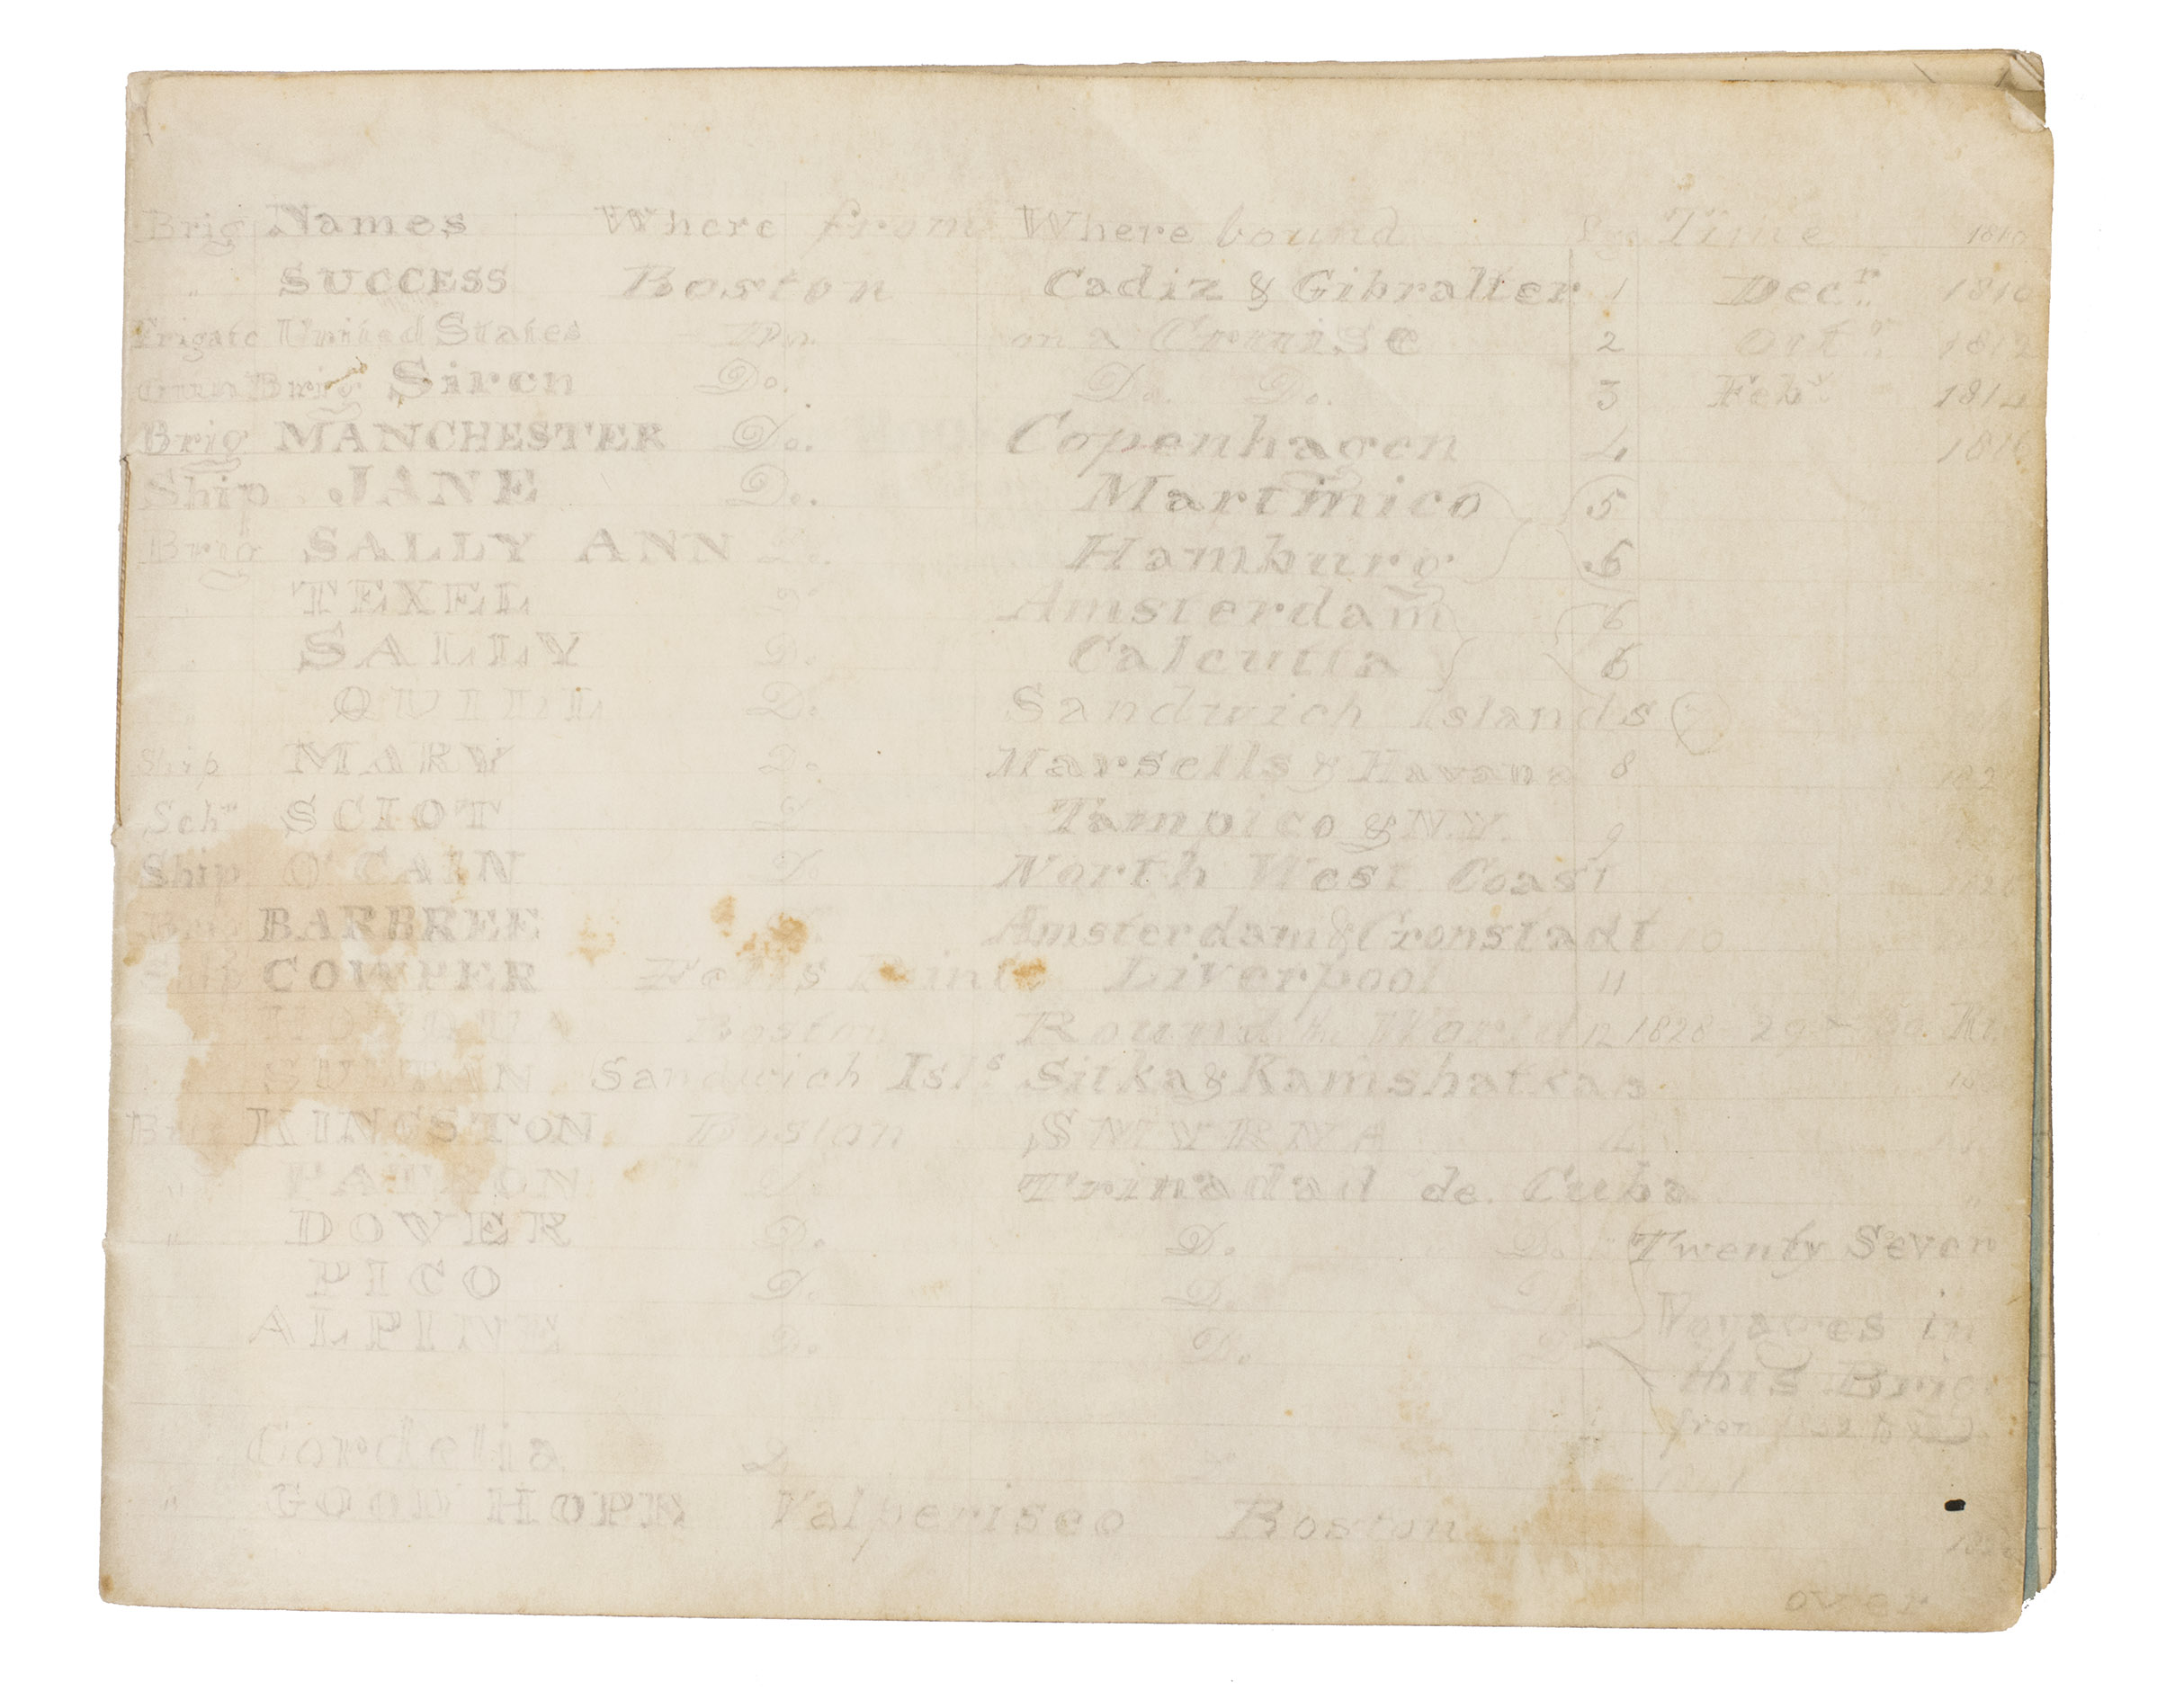 Brig Names Where from Where bound Pg Time 1810
" SUCCESS Boston Cadiz & Gibralter 1 Decr 1810
Frigate United States Do. on a Cruise 2 Octr 1812
Gun Brig Siren Do. Do. Do. 3 Feby 1814
Brig MANCHESTER Do. Copenhagen 4 1816
Ship JANE Do. Martinico 5
Brig SALLY ANN Do. Hamburg 5
TEXEL Do Amsterdam 6
" SALLY Do. Calcutta 6
" QUILL Do Sandwich Islands 7
Ship MARY Do. Marsells & Havana 8
Schr SCIOT D Tampico & N.Y. 9
Ship O'CAIN Do North West Coast
Brig BARBREE Amsterdam & Cronstadt 10
Ship COWPER Fells Point Liverpool 11
Boston Round the World 12 1828 29
SULTAN Sandwich Isls Sitka & Kamshatka 13
Brig KINGSTON Boston SMYRNA
" PATRON Do. Trinadad de. Cuba "
" DOVER Do. Do. Do. " Twenty Seven
PICO Do. Do. Do. Voyages in
ALPINE Do. Do. Do this Brig
from 1832 to
Cordelia Do
" GOOD HOPE Valperisco Boston
over